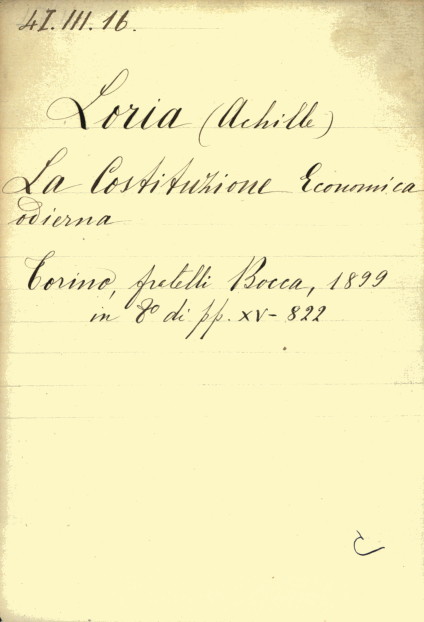 4I.III.16.
Loria (Achille)
La Costituzione Economica
odierna
Torino, fratelli Bocca, 1899
in 8º di pp. XV-822